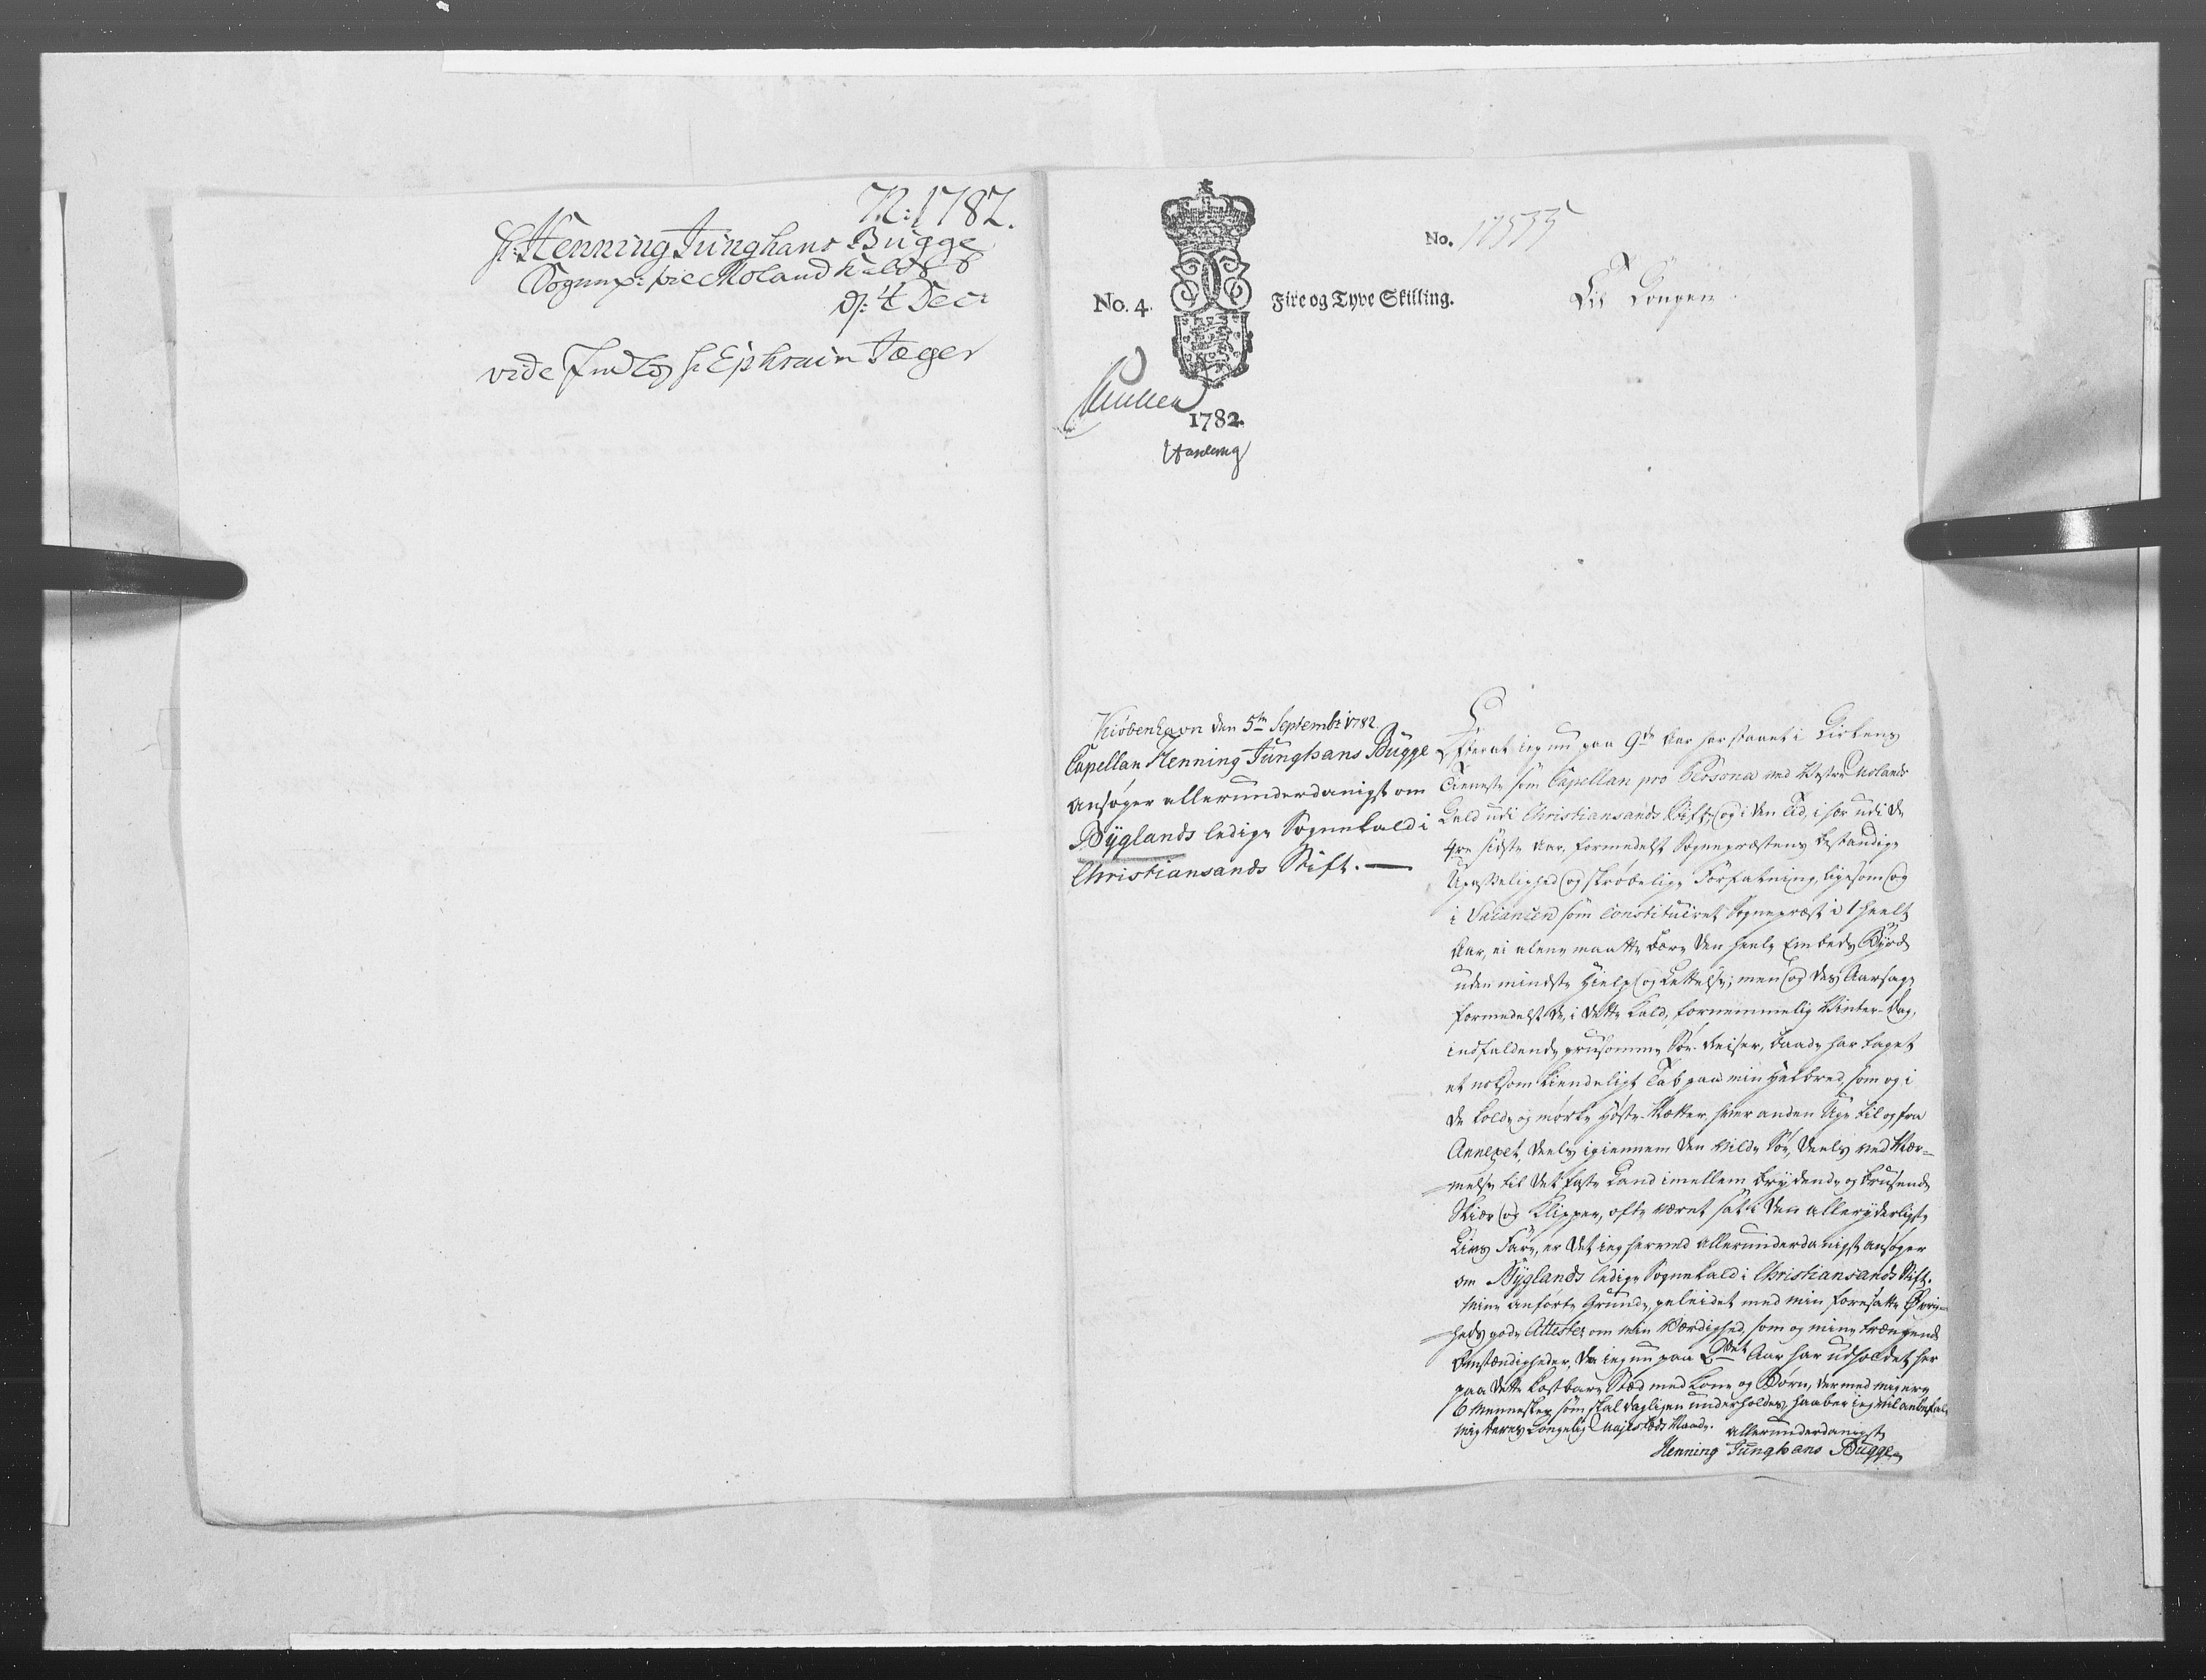 N: 1782.
Hr: Henning Junghans Bugge
Sognepr: til Moland Kald
d: 4 Dec:
vide Indlæg Hr Ephraim Jæger
No. 4.
Fire og Tyve Skilling.
1782.
No. 17535
Til Kongen
Kiöbenhavn den 5te Septembr 1782.
Capellan Henning Junghans Bugge
ansøger allerunderdanigst om
Byglands ledige Sognekald i
Christiansands Stift. —
Efterat jeg nu paa 9de Aar har staaet i Kirkens
Tieneste som Capellan pro Persona ved Westre Molands
Kald udi Christiansands Stift, og i den Tid, i sær udi de
4re sidste Aar, formedelst Sognepræstens bestandige
Upasselighed og skrøbelige Forfatning, ligesom og
i Vacancen som constitueret Sognepræst i 1 heelt
Aar, ei alene maatte bære den heele Embeds Byrde
uden mindste Hielp og Lettelse; men og des Aarsage
formedelst de, i dette Kald, fornemmelig Vinter-Dag,
indfaldende grusomme Søe-Reiser, baade har taget
et noksom kiendeligt Tab paa min Helbred, som og i
de kolde og mørke Høste-Nætter, hver anden Uge til og fra
Annexet, deels igiennem den vilde Søe, deels ved Nær-
melse til det faste Land imellem brydende og brusende
Skiær og Klipper, ofte været sat i den alleryderligste
Livs Fare, er det jeg herved allerunderdanigst ansøger
om Byglands ledige Sognekald i Christiansands Stift.
Mine anførte Grunde, geleidet med min foresatte Øvrig-
heds gode Attester om min Værdighed, som og mine trængende
Omstændigheder, da jeg nu paa 2det Aar har udholdet her
paa dette kostbare Stæd med Kone og Børn, der med mig ere
6 Mennesker som skal dagligen underholdes, haaber jeg vil anbefale
mig Deres Kongelig Majestæts Naade.
allerunderdanigst
Henning Junghans Bugge